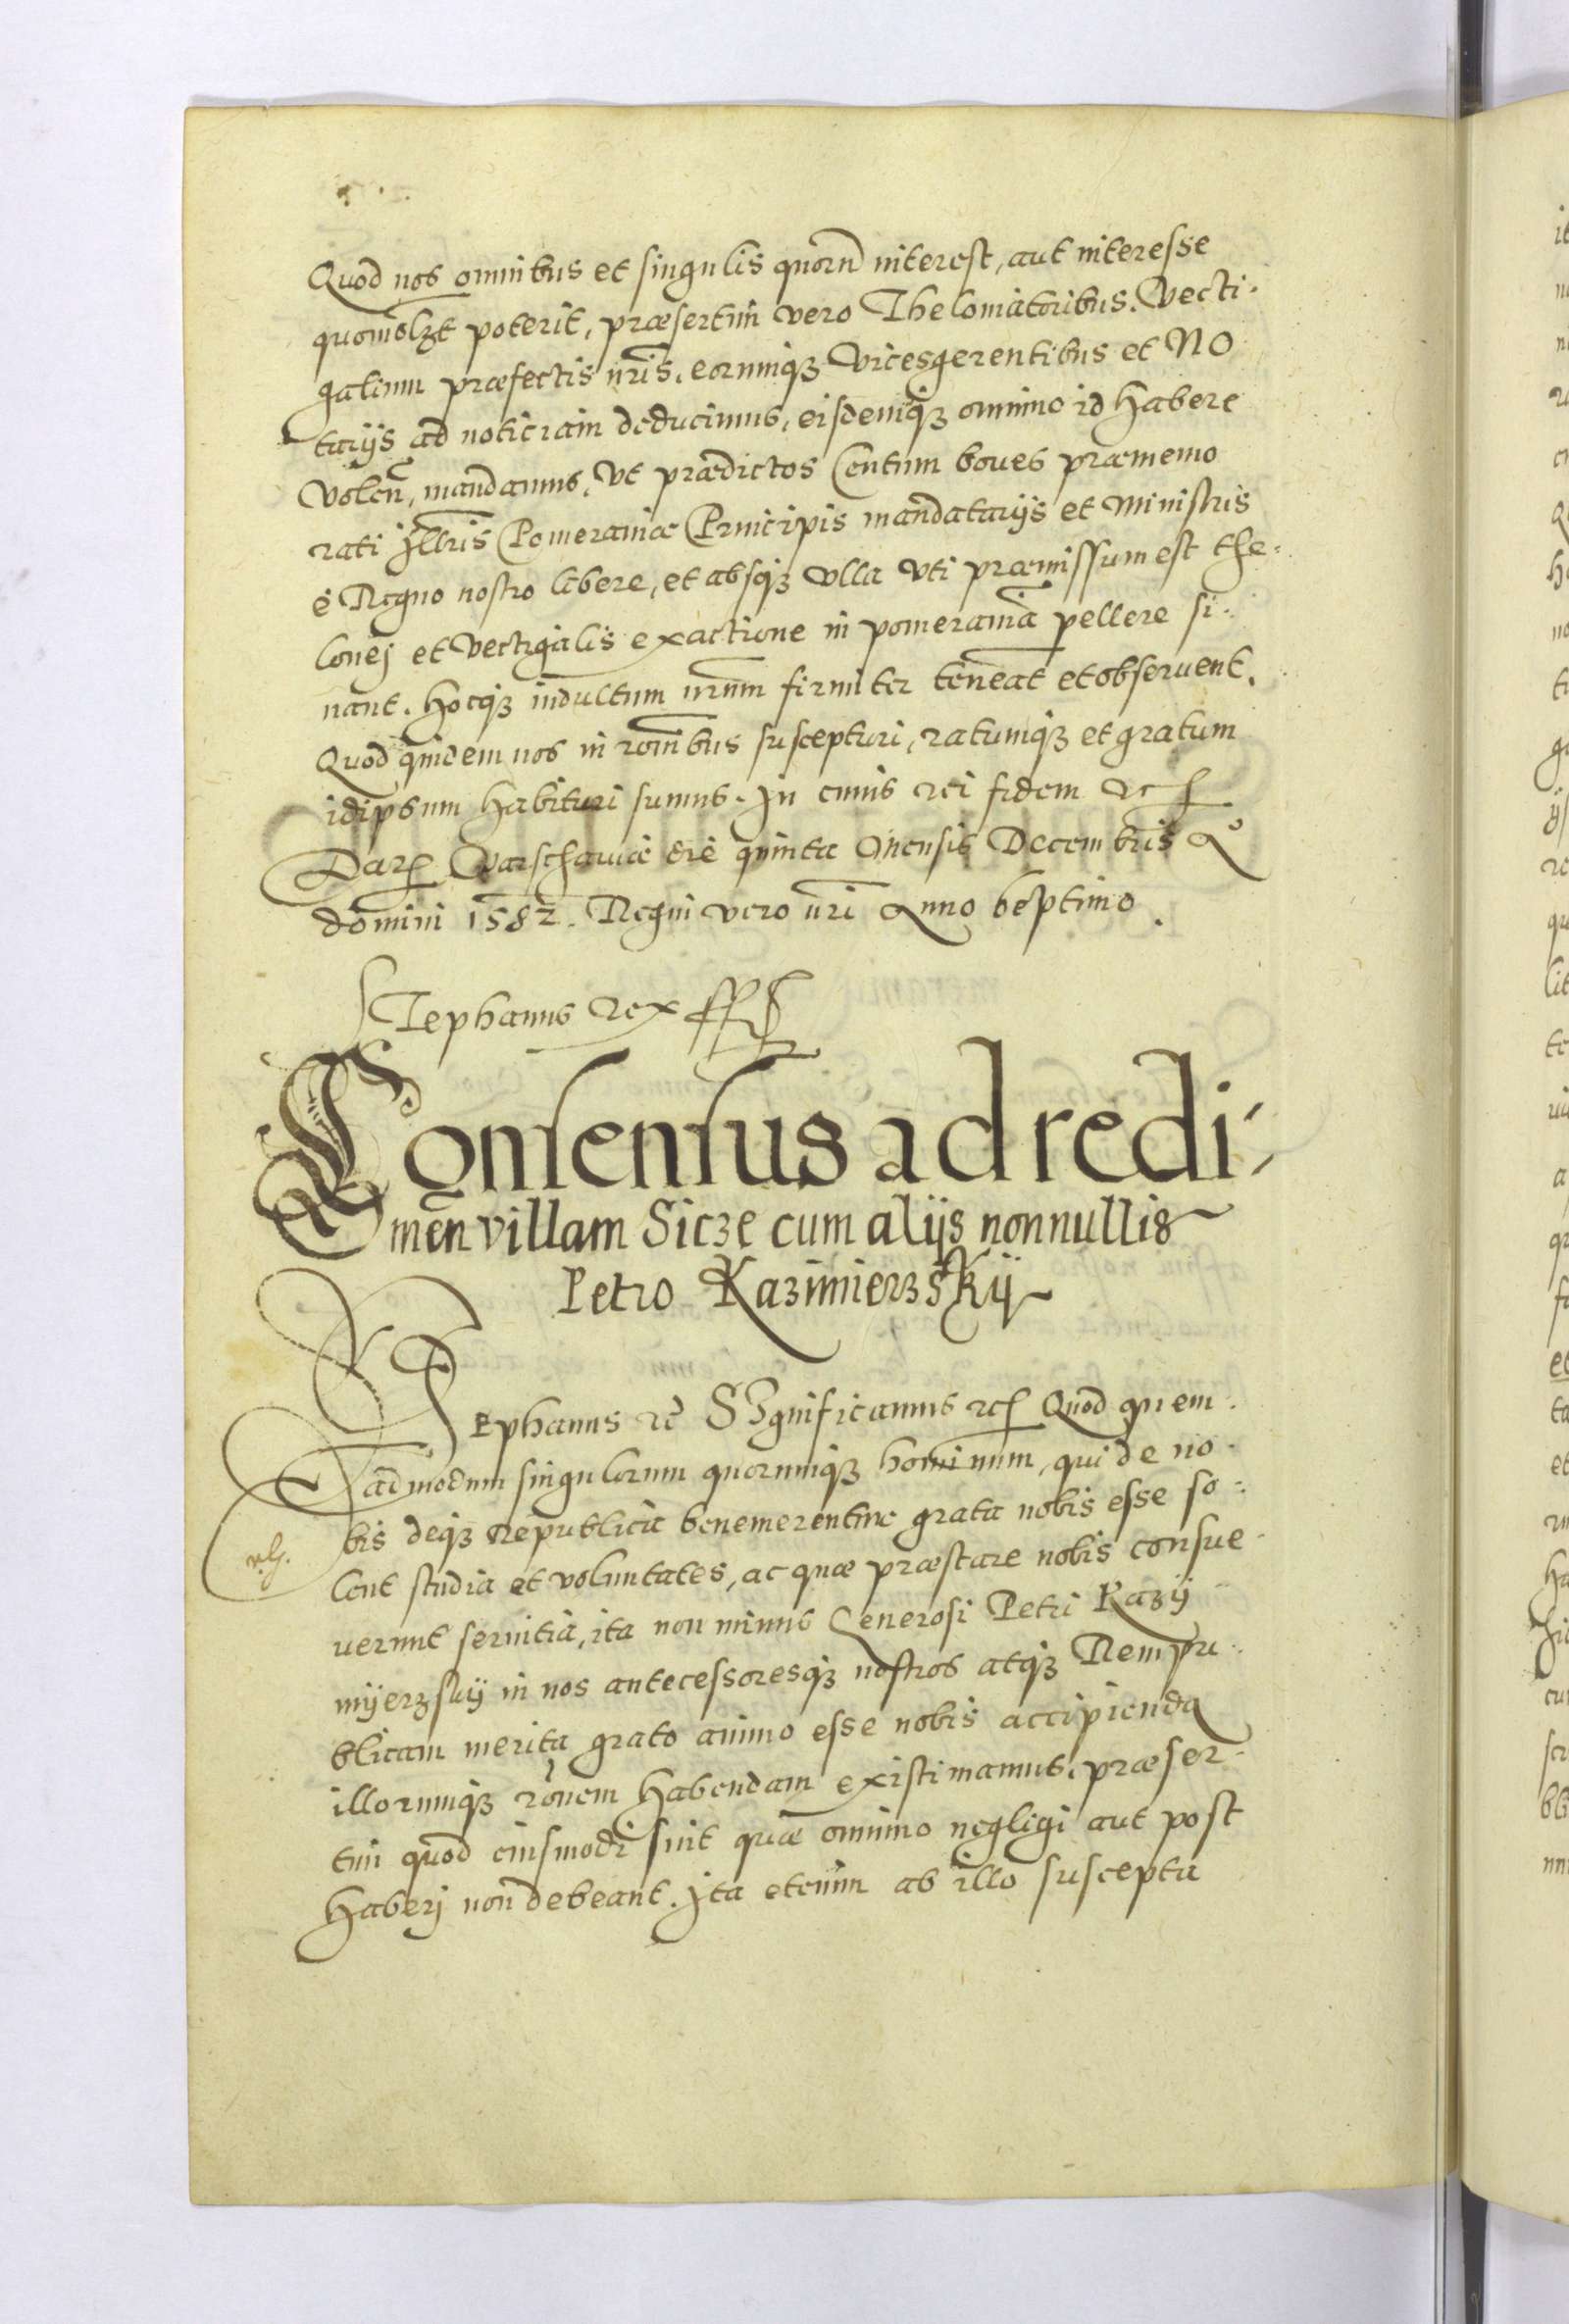 Quod nos omnibus et singulis quorū interest, aut interesse
quomōlzt poterit, præsertim vero Theloniatoribus. Vecti-
galium præfectis nr̄is, eorumqꝫ vicesgerentibus et No
tarijs ad noticiam deducimus, eisdemqꝫ omnino id habere
volen̄, mandamus, Vt prædictos Centum boues præmemo
rati Jll̄ris Pomeraniæ Principis mandatarijs et Ministris
è Regno nostro libere, et absqꝫ vlla vti præmissum est the-
lonej et vectigalis exactione in pomeraniā pellere si-
nant. Hocqꝫ indultum nr̄um firmiter teneāt et obseruent.
Quod quidem nos in rōnibus suscepturi, ratumqꝫ et gratum
idipsum habituri sumus. Jn cuius rei fidem etc
Dat Varschauiæ die quinta Mensis Decembris Aº
domini 1582. Regni vero nr̄i Anno septimo.
Stephanus Rex sst
Consensus ad redi-
men̄ villam Sicze cum alijs nonnullis
Petro Kazimierzskij
Stephanus etc̄ Significamus etc Quod quem-
admodum singulorum quorumqꝫ hominum, qui de no-
bis deqꝫ republica benemerentur grata nobis esse so-
lent studia et voluntates, ac quæ præstare nobis consue-
uerunt seruitia, ita non minus Generosi Petri Kazij
mijerzskij in nos antecessoresqꝫ nostros atqꝫ Rempu-
blicam merita grato animo esse nobis accipienda
illorumqꝫ rōnem habendam existimamus, præser-
tim quod eiusmodi sint quæ omnino negligi aut post
haberj non debeant. Jta etenim ab illo suscepta